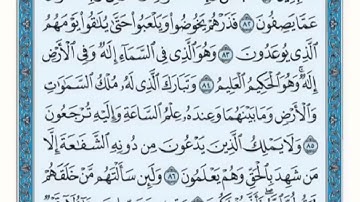 عَمَّا يَصِفُونَ ٨٢ فَذَرْهُمْ يَخُوضُوا۟ وَيَلْعَبُوا۟ حَتَّىٰ يُلَـٰقُوا۟ يَوْمَهُمُ
ٱلَّذِى يُوعَدُونَ ٨٣ وَهُوَ ٱلَّذِى فِى ٱلسَّمَآءِ إِلَـٰهٌ وَفِى ٱلْأَرْضِ
إِلَـٰهٌ وَهُوَ ٱلْحَكِيمُ ٱلْعَلِيمُ ٨٤ وَتَبَارَكَ ٱلَّذِى لَهُۥ مُلْكُ ٱلسَّمَـٰوَٰتِ
وَٱلْأَرْضِ وَمَا بَيْنَهُمَا وَعِندَهُۥ عِلْمُ ٱلسَّاعَةِ وَإِلَيْهِ تُرْجَعُونَ
٨٥ وَلَا يَمْلِكُ ٱلَّذِينَ يَدْعُونَ مِن دُونِهِ ٱلشَّفَـٰعَةَ إِلَّا
مَن شَهِدَ بِٱلْحَقِّ وَهُمْ يَعْلَمُونَ ٨٦ وَلَئِن سَأَلْتَهُم مَّنْ خَلَقَهُمْ